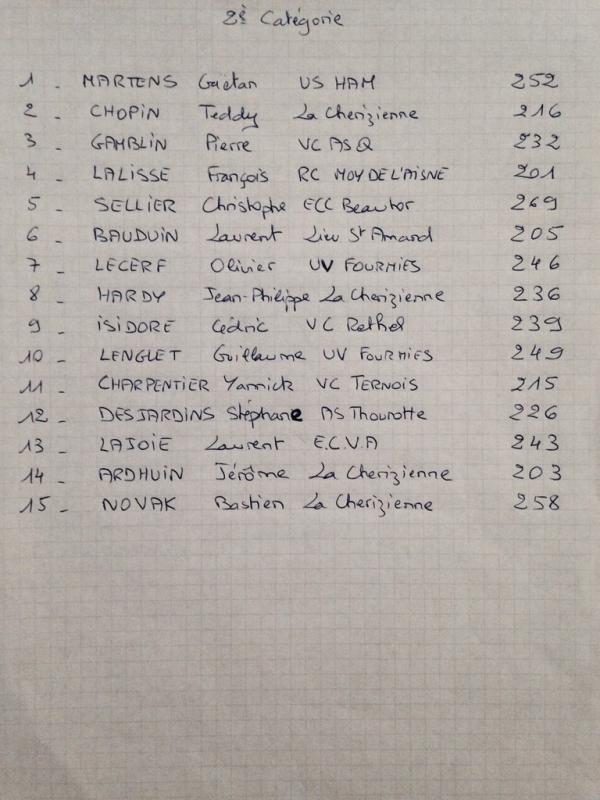 2è Catégorie
1 - MARTENS Gaëtan US HAM 252
2 - CHOPIN Teddy La Cherizienne 216
3 - GAMBLIN Pierre VC ASQ 232
4 - LALISSE François RC MOY DE L'AISNE 201
5 - SELLIER Christophe ECC Beautor 269
6 - BAUDUIN Laurent Lieu St Amand 205
7 - LECERF Olivier UV FOURMIES 246
8 - HARDY Jean-Philippe La Cherizienne 236
9 - ISIDORE Cédric VC Rethel 239
10 - LENGLET Guillaume UV FOURMIES 249
11 - CHARPENTIER Yannick VC TERNOIS 215
12 - DESJARDINS Stéphane AS Thourotte 226
13 - LAJOIE Laurent E.C.V.A 243
14 - ARDHUIN Jérôme La Cherizienne 203
15 - NOVAK Bastien La Cherizienne 258